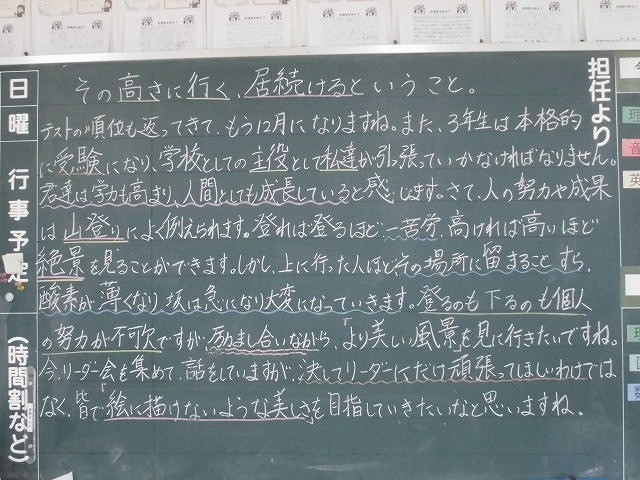 担任より
その高さに行く、居続けるということ。
テストの順位も返ってきて、もう12月になりますね。また、3年生は本格的
に受験になり、学校としての主役として私達が引っ張っていかなければなりません。
君達は学力も高まり、人間としても成長していると感じます。さて、人の努力や成果
は山登りによく例えられます。登れば登るほど一苦労、高ければ高いほど
絶景を見ることができます。しかし、上に行った人ほどその場所に留まることすら、
酸素が薄くなり坂は急になり大変になっていきます。登るのも下るのも個人
の努力が不可欠ですが、励まし合いながら、「より美しい風景」を見に行きたいですね。
今、リーダー会を集めて、話をしていますが、決してリーダーにだけ頑張ってほしいわけでは
なく、皆で「絵に描けないような美しさ」を目指していきたいなと思いますね。
日
曜
行事予定
(時間割など)
理
音
英